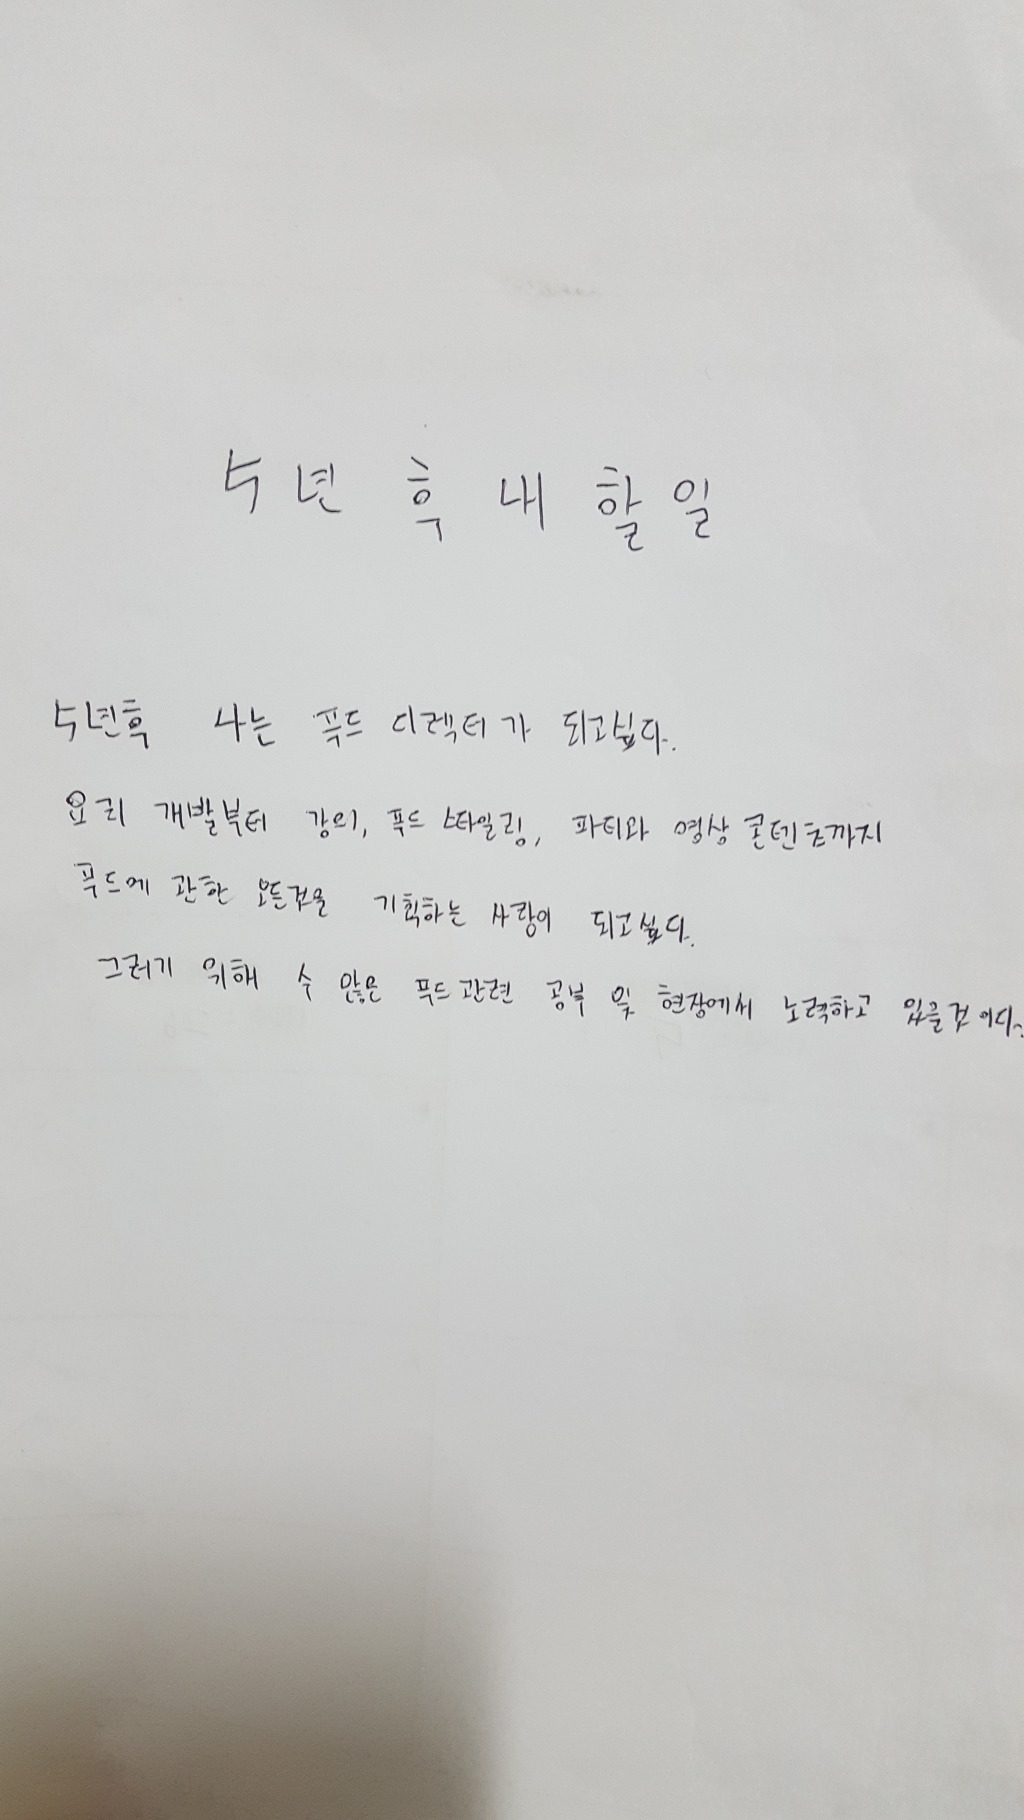 5년 후 내 할 일
5년후 나는 푸드 디렉터가 되고싶다.
요리 개발부터 강의, 푸드 스타일링, 파티와 영상 콘텐츠까지
푸드에 관한 모든것을 기획하는 사람이 되고싶다.
그러기 위해 수 많은 푸드 관련 공부 및 현장에서 노력하고 있을것 이다.